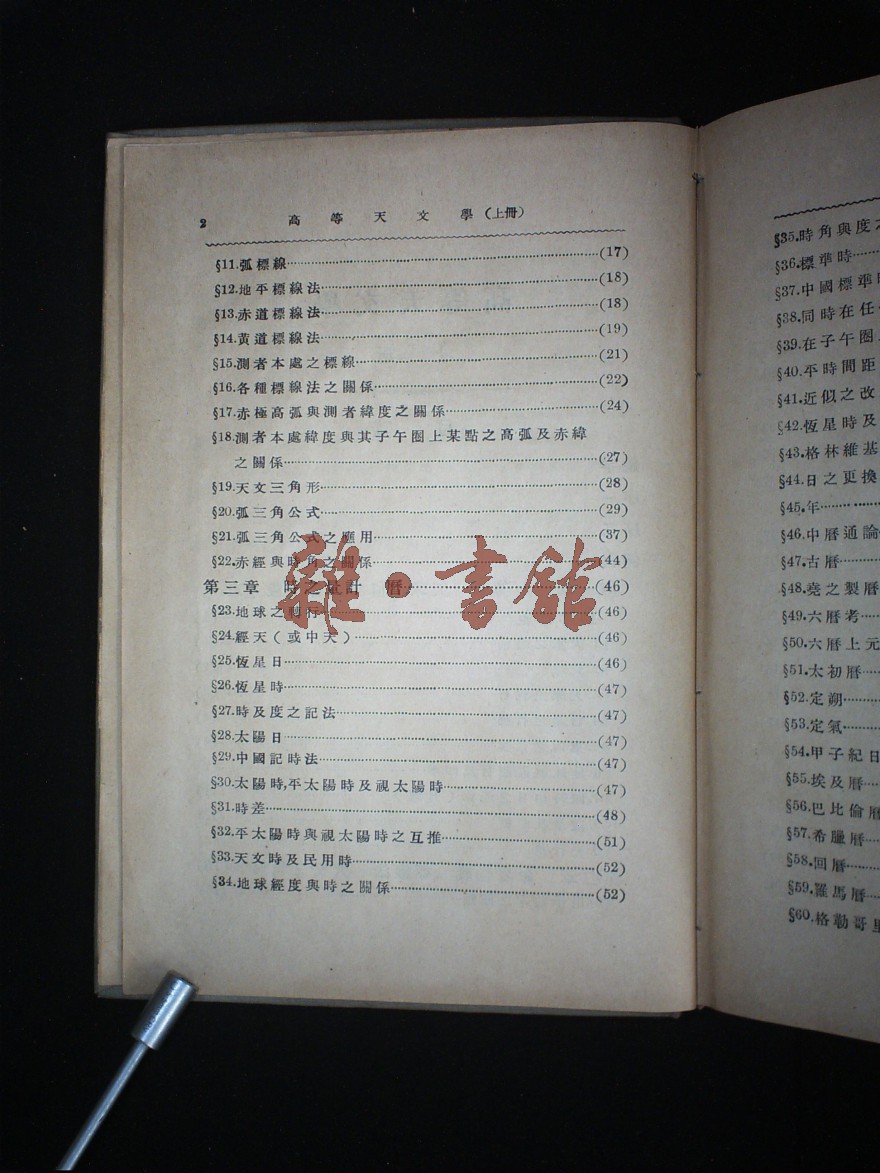 2 高等天文學(上冊)
§11.弧標線……(17)
§12.地平標線法……(18)
§13.赤道標線法……(18)
§14.黃道標線法……(19)
§15.測者本處之標線……(21)
§16.各種標線法之關係……(22)
§17.赤極高弧與測者緯度之關係……(24)
§18.測者本處緯度與其子午圈上某點之高弧及赤緯
之關係……(27)
§19.天文三角形……(28)
§20.弧三角公式……(29)
§21.弧三角公式之應用……(37)
§22.赤經與時角之關係……(44)
第三章 時之計 曆……(46)
§23.地球之轉行……(46)
§24.經天(或中天)……(46)
§25.恆星日……(46)
§26.恆星時……(47)
§27.時及度之記法……(47)
§28.太陽日……(47)
§29.中國記時法……(47)
§30.太陽時,平太陽時及視太陽時……(47)
§31.時差……(48)
§32.平太陽時與視太陽時之互推……(51)
§33.天文時及民用時……(52)
§34.地球經度與時之關係……(52)
雜·書館
§35.時角與度之
§36.標準時……
§37.中國標準時
§38.同時在任
§39.在子午圈
§40.平時間距
§41.近似之改
§42.恆星時及
§43.格林維基
§44.日之更換
§45.年……
§46.中曆通論
§47.古曆……
§48.堯之製曆
§49.六曆考……
§50.六曆上元
§51.太初曆……
§52.定朔……
§53.定氣……
§54.甲子紀日
§55.埃及曆……
§56.巴比倫曆
§57.希臘曆……
§58.回曆……
§59.羅馬曆……
§60.格勒哥里